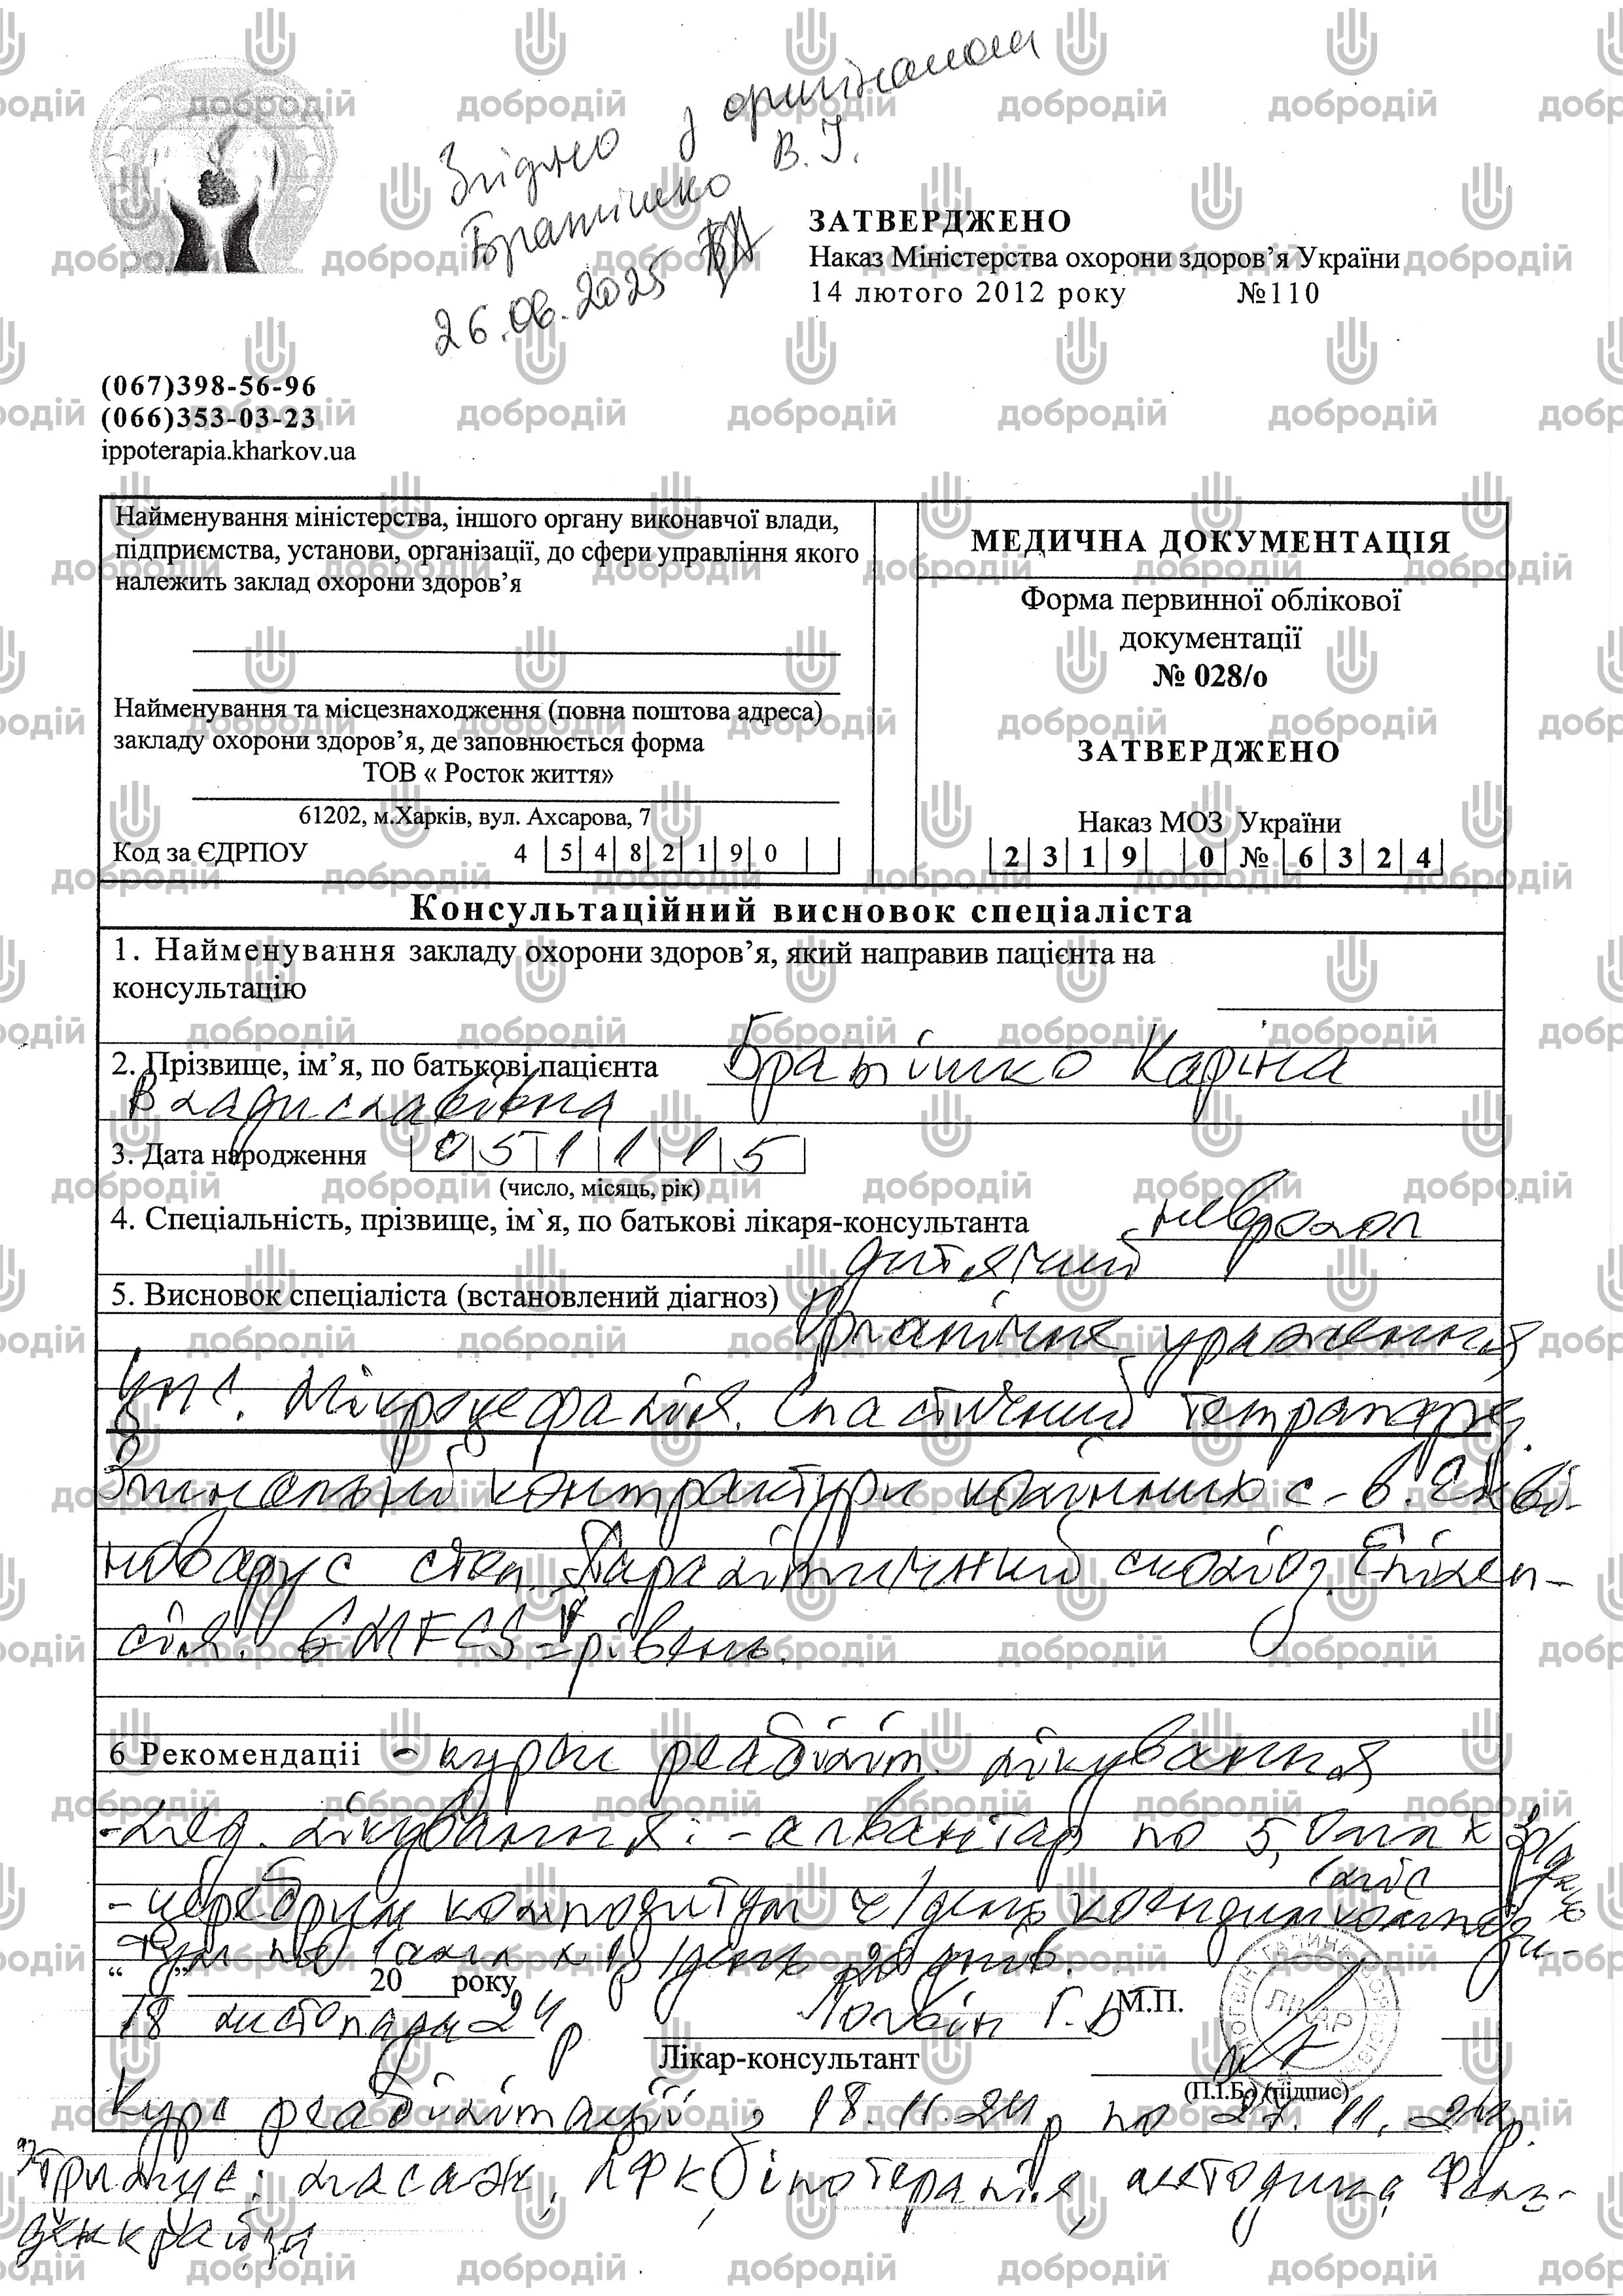 Згідно з оригіналом
Братішко В.І.
26.06.2025
ЗАТВЕРДЖЕНО
Наказ Міністерства охорони здоров’я України
14 лютого 2012 року №110
(067)398-56-96
(066)353-03-23
ippoterapia.kharkov.ua
Найменування міністерства, іншого органу виконавчої влади,
підприємства, установи, організації, до сфери управління якого
належить заклад охорони здоров’я
Найменування та місцезнаходження (повна поштова адреса)
закладу охорони здоров’я, де заповнюється форма
ТОВ « Росток життя»
61202, м.Харків, вул. Ахсарова, 7
Код за ЄДРПОУ 4 5 4 8 2 1 9 0
МЕДИЧНА ДОКУМЕНТАЦІЯ
Форма первинної облікової
документації
№ 028/о
ЗАТВЕРДЖЕНО
Наказ МОЗ України
2 3 1 9 0 № 6 3 2 4
Консультаційний висновок спеціаліста
1. Найменування закладу охорони здоров’я, який направив пацієнта на
консультацію
2. Прізвище, ім’я, по батькові пацієнта Братішко Каріна
Владиславівна
3. Дата народження 0 5 1 1 1 5
(число, місяць, рік)
4. Спеціальність, прізвище, ім`я, по батькові лікаря-консультанта невролог
дитячий
5. Висновок спеціаліста (встановлений діагноз) Органічне ураження
ЦНС. Мікроцефалія. Спастичний тетрапарез.
Згинальні контрактури колінних с-в. Екві-
новарус стоп. Паралітичний сколіоз. Епілеп-
сія. GMFCS-V рівень.
6 Рекомендації - курси реабіліт. лікування
-Мед. лікування: - алвантар по 5,0мл х
- церебрум композитум ч/день, коензим композі-
тум по 1амп х 1р/день 20 днів.
“ ” 20 року М.П.
18 листопада 24р Логвін Г.Б
ЛІКАР
Лікар-консультант
(П.І.Б. (підпис)
Курс реабілітації з 18.11.24р по 27.11.24р.
отримує: масаж, ЛФК, іпотерапія, методика Фель-
денкрайза
добродій